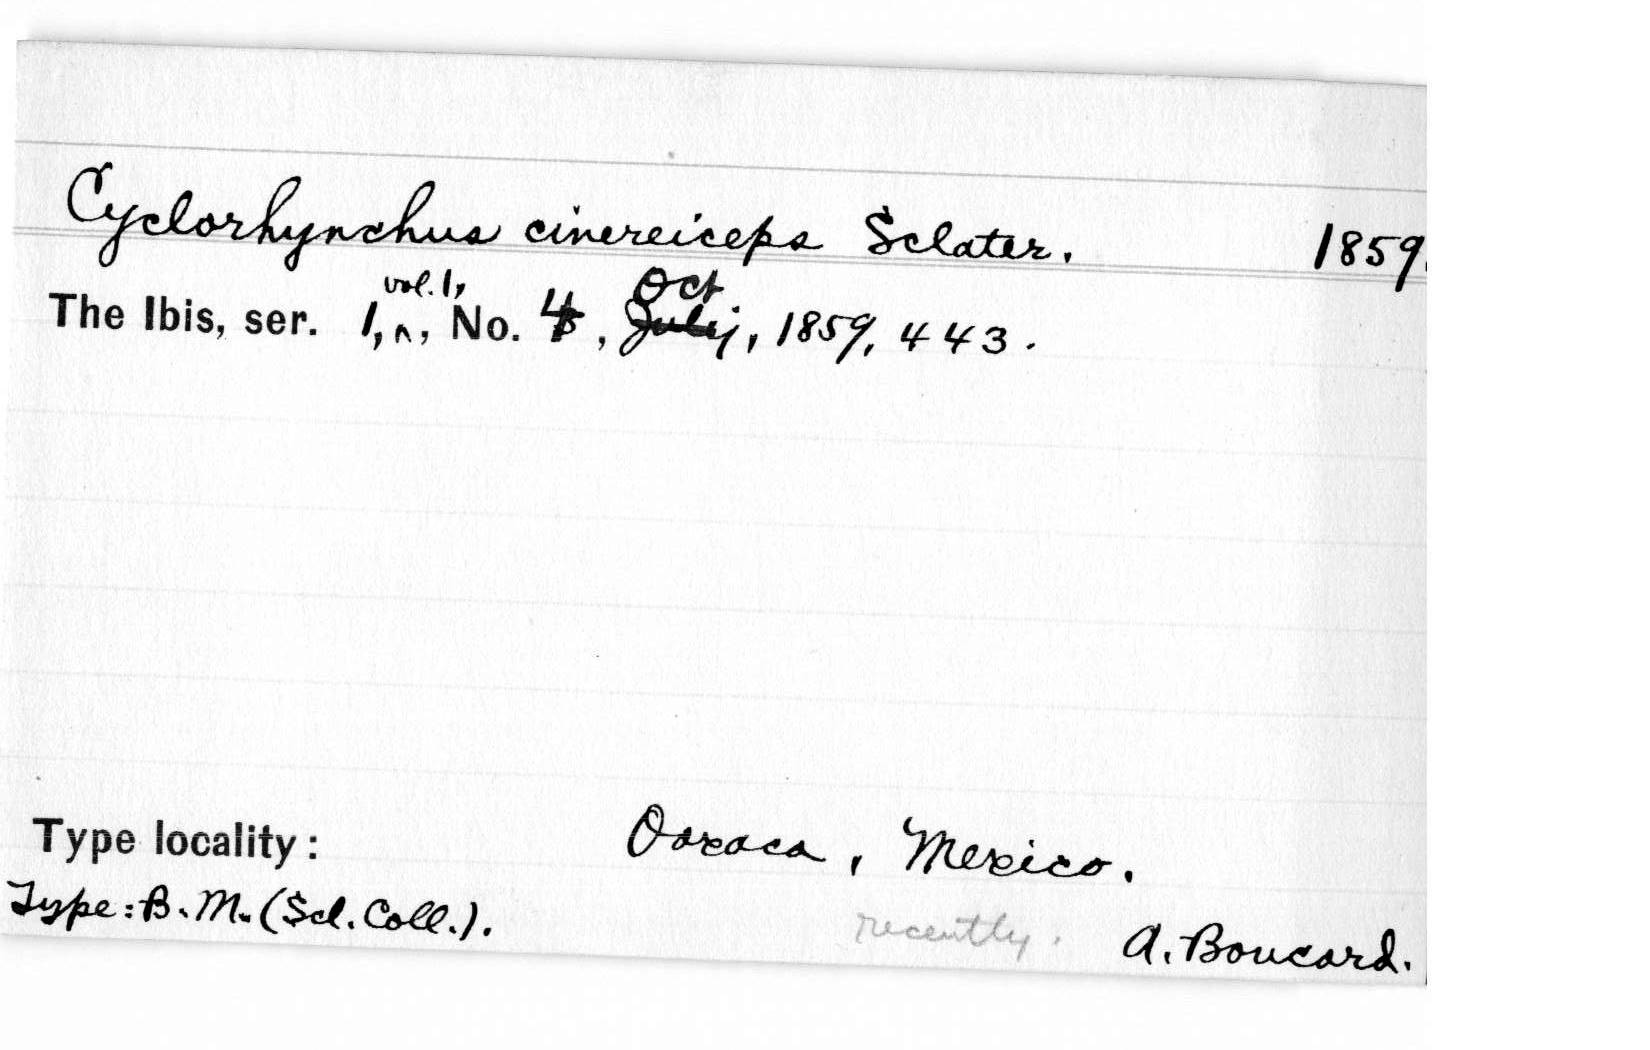 Cyclorhynchus cinereiceps Sclater. 1859.
The Ibis, ser. 1, vol. 1, , No. 4, Oct July, 1859, 443.
Type locality: Oaxaca, Mexico.
Type: B. M. (Scl. Coll.). recently. A. Boucard.